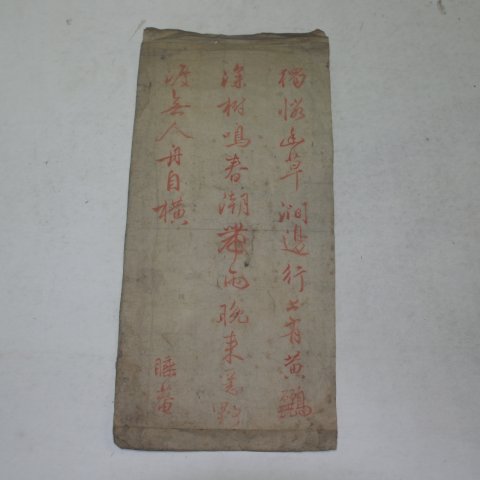 獨憐幽草澗邊行上有黃鸝
深樹鳴春潮帶雨晚來急野
渡無人舟自橫